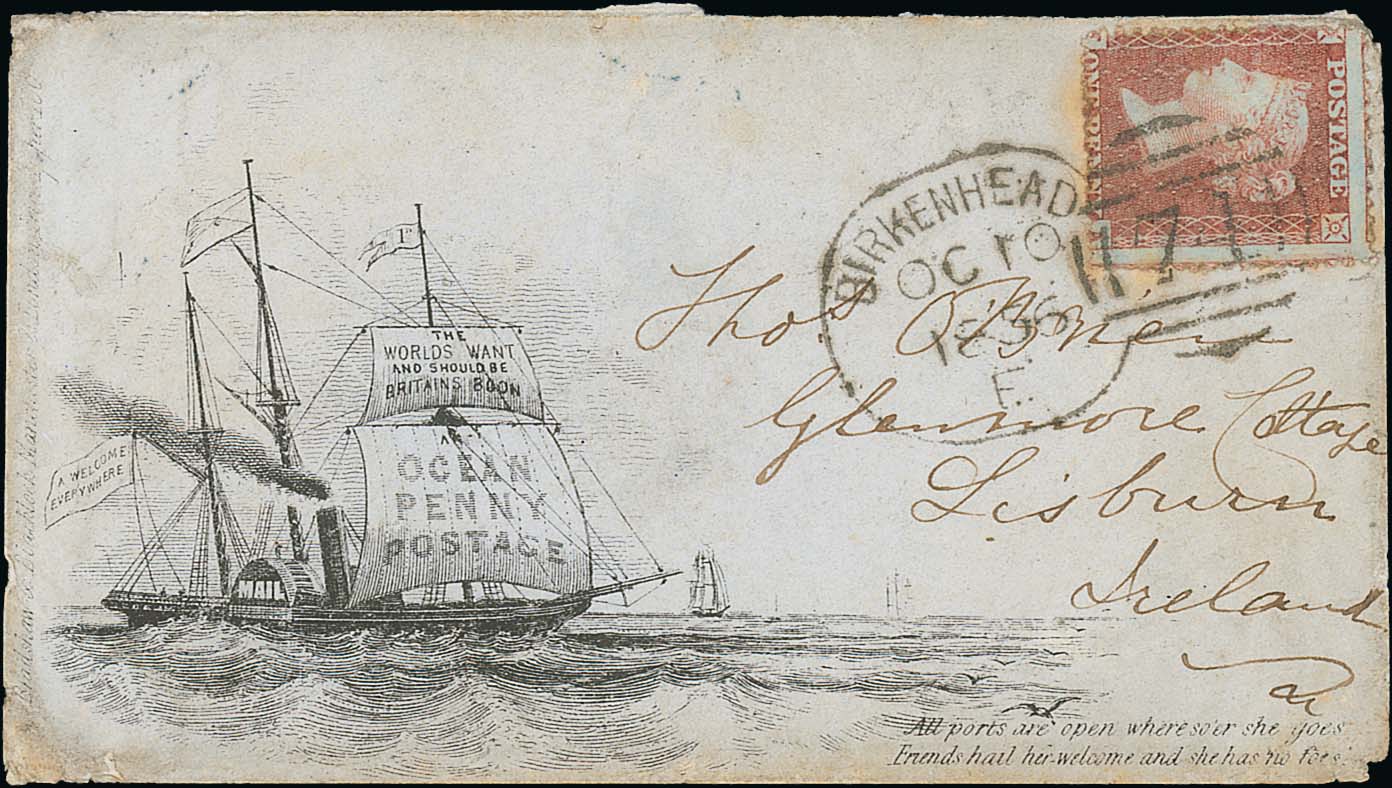 POSTAGE
ONE PENNY
BIRKENHEAD
OC 10
1856
E
71
Thos O'Brien
Glenmore Cottage
Lisburn
Ireland
1d
THE
WORLDS WANT
AND SHOULD BE
BRITAINS BOON
AN
OCEAN
PENNY
POSTAGE
A WELCOME
EVERYWHERE
MAIL
All ports are open whereso'er she goes
Friends hail her welcome and she has no foes